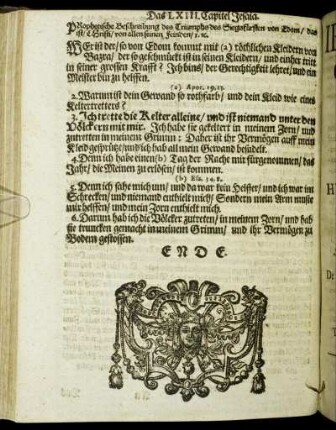 Das LXIII. Capitel Jesaia.
PRophetische Beschreibung des Triumphs des Siegsfürsten von Edom / das
ist / Christi / von allen seinen Feinden / ꝛc.
WEr ist der / so von Edom kommt mit (a) röthlichen Kleidern von
Bazra / der so geschmückt ist in seinen Kleidern / und einher tritt
in seiner grossen Krafft? Ich bins / der Gerechtigkeit lehret / und ein
Meister bin zu helffen.
(a) Apoc. 19.13.
2. Warum ist dein Gewand so rothfarb / und dein Kleid wie eines
Keltertretters?
3. Ich trette die Kelter alleine / und ist niemand unter den
Völckern mit mir. Ich habe sie gekeltert in meinem Zorn / und
zutretten in meinem Grimm: Daher ist ihr Vermögen auff mein
Kleid gesprützt / und ich hab all mein Gewand besudelt.
4. Denn ich habe einen (b) Tag der Rache mir fürgenommen / das
Jahr / die Meinen zu erlösen / ist kommen.
(b) Esa. 34.8.
5. Denn ich sahe mich um / und da war kein Helffer / und ich war im
Schrecken / und niemand enthielt mich / Sondern mein Arm muste
mir helffen / und mein Zorn enthielt mich.
6. Darum hab ich die Völcker zutreten / in meinem Zorn / und hab
sie truncken gemacht in meinem Grimm / und ihr Vermögen zu
Boden gestossen.
ENDE.